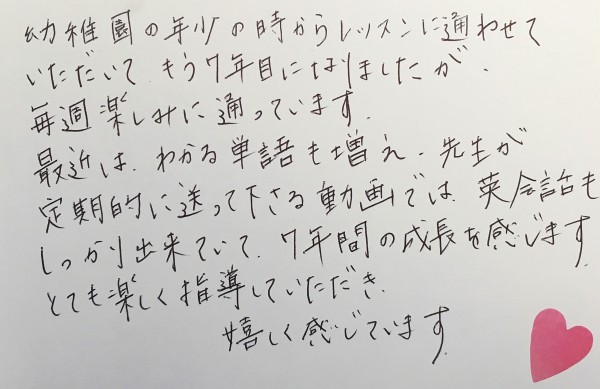 幼稚園の年少の時からレッスンに通わせて
いただいて、もう7年目になりましたが、
毎週楽しみに通っています。
最近は、わかる単語も増え、先生が
定期的に送って下さる動画では、英会話も
しっかり出来ていて、7年間の成長を感じます。
とても楽しく指導していただき、
嬉しく感じています。